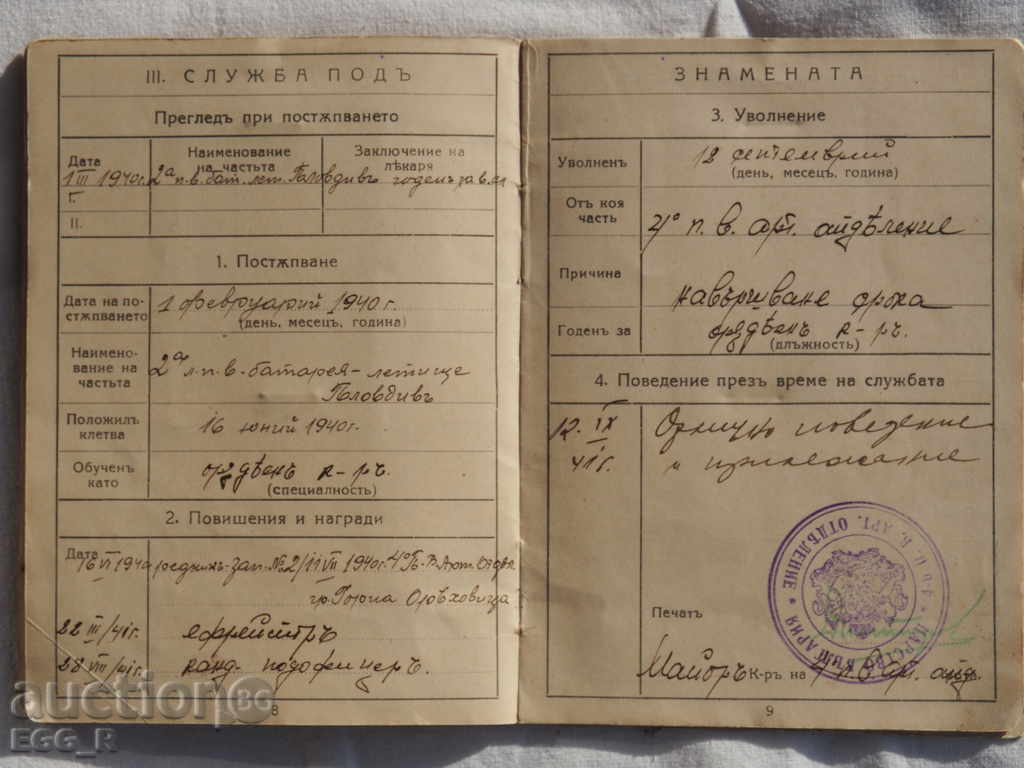 III. СЛУЖБА ПОДЪ
Прегледъ при постѫпването
Дата
Наименование на частьта
Заключение на лѣкаря
1 III 1940г. 2а п.в. бат. лет. Пловдивъ годенъ за в.сл
I.
II.
1. Постѫпване
Дата на по-
стѫпването
1 февруарий 1940 г.
(день, месецъ, година)
Наимено-
вание на
частьта
2а л.п.в. батарея - летище
Пловдивъ
Положилъ
клетва
16 юний 1940г.
Обученъ
като
орѫдѣенъ к-ръ.
(специалность)
2. Повишения и награди
Дата
16 VI 1940 редникъ - зап. № 2/11 VII 1940г. 4о П.В.Арт. Отдѣл
гр. Горна Орѣховица
22 III/41г. ефрейторъ
28 VIII/41г. канд. подофицеръ.
8
ЗНАМЕНАТА
3. Уволнение
Уволненъ
12 септемврий
(день, месецъ, година)
Отъ коя
часть
4о п. в. арт. отдѣление
Причина
навършване срока
Годенъ за
орѫдѣенъ к-ръ
(длъжность)
4. Поведение презъ време на службата
12. IX
41 г.
Отлично поведение
и прилежание
ЦАРСТВО БЪЛГАРИЯ * 4-о П. В. АРТ. ОТДѢЛЕНИЕ *
Печатъ
Майоръ К-ръ на 4 п.в. арт. отд.
9
auction86
EGG_R